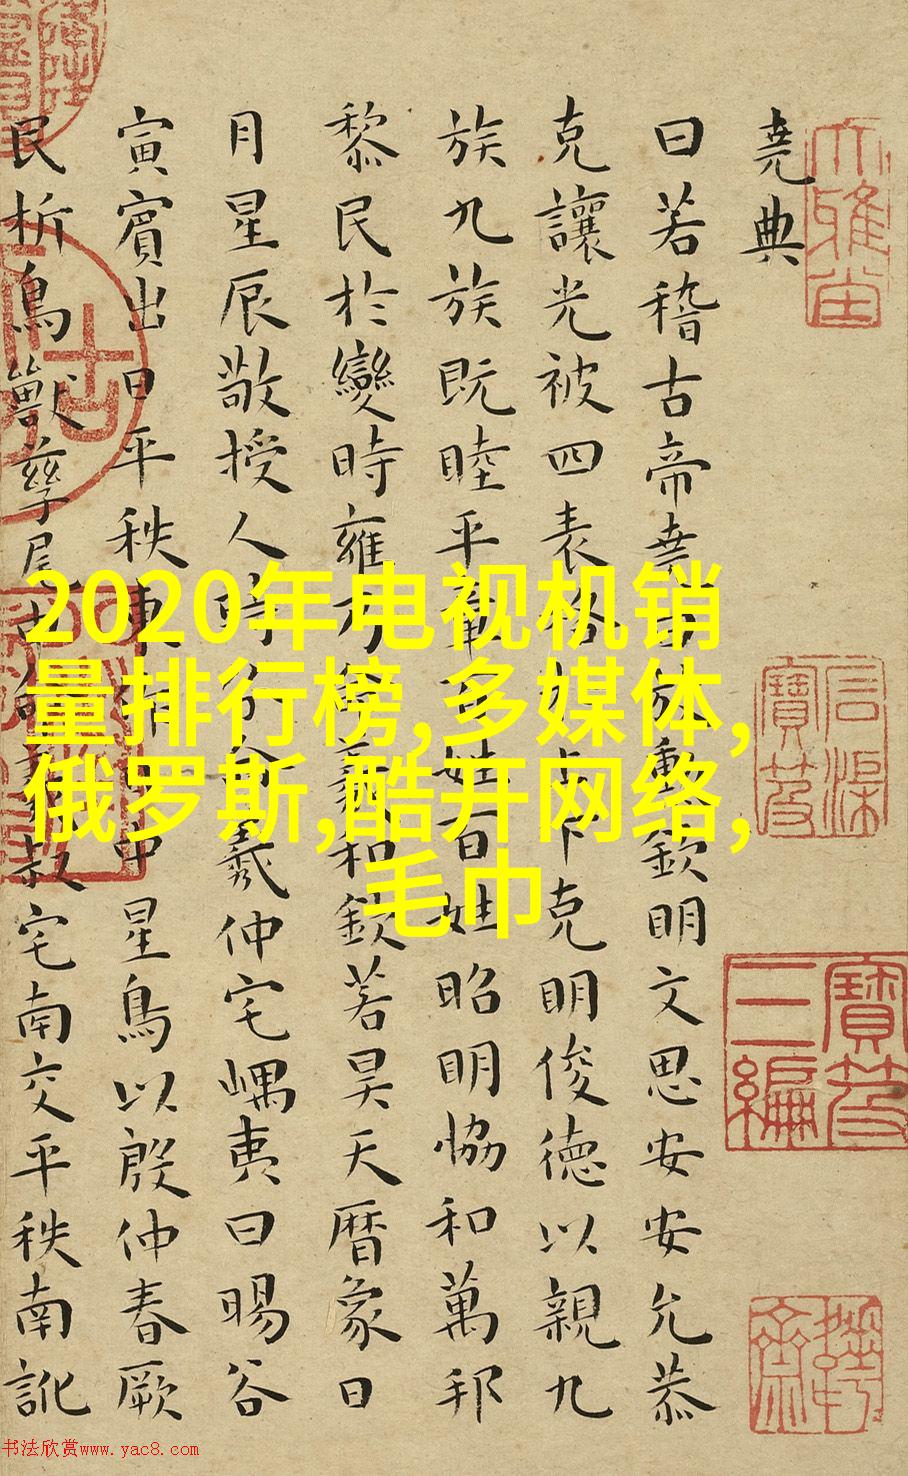 堯典
曰若稽古帝堯曰放勳欽明文思安安允恭
克讓光被四表格于上下克明俊德以親九
族九族既睦平章百姓百姓昭明協和萬邦
黎民於變時雍乃命羲和欽若昊天曆象日
月星辰敬授人時分命羲仲宅嵎夷曰暘谷
寅賓出日平秩東作日中星鳥以殷仲春厥
民析鳥獸孳尾申命羲叔宅南交平秩南訛
2020年电视机销
量排行榜,多媒体,
俄罗斯,酷开网络,
毛巾
寶笈
三編
书法欣赏www.yac8.com